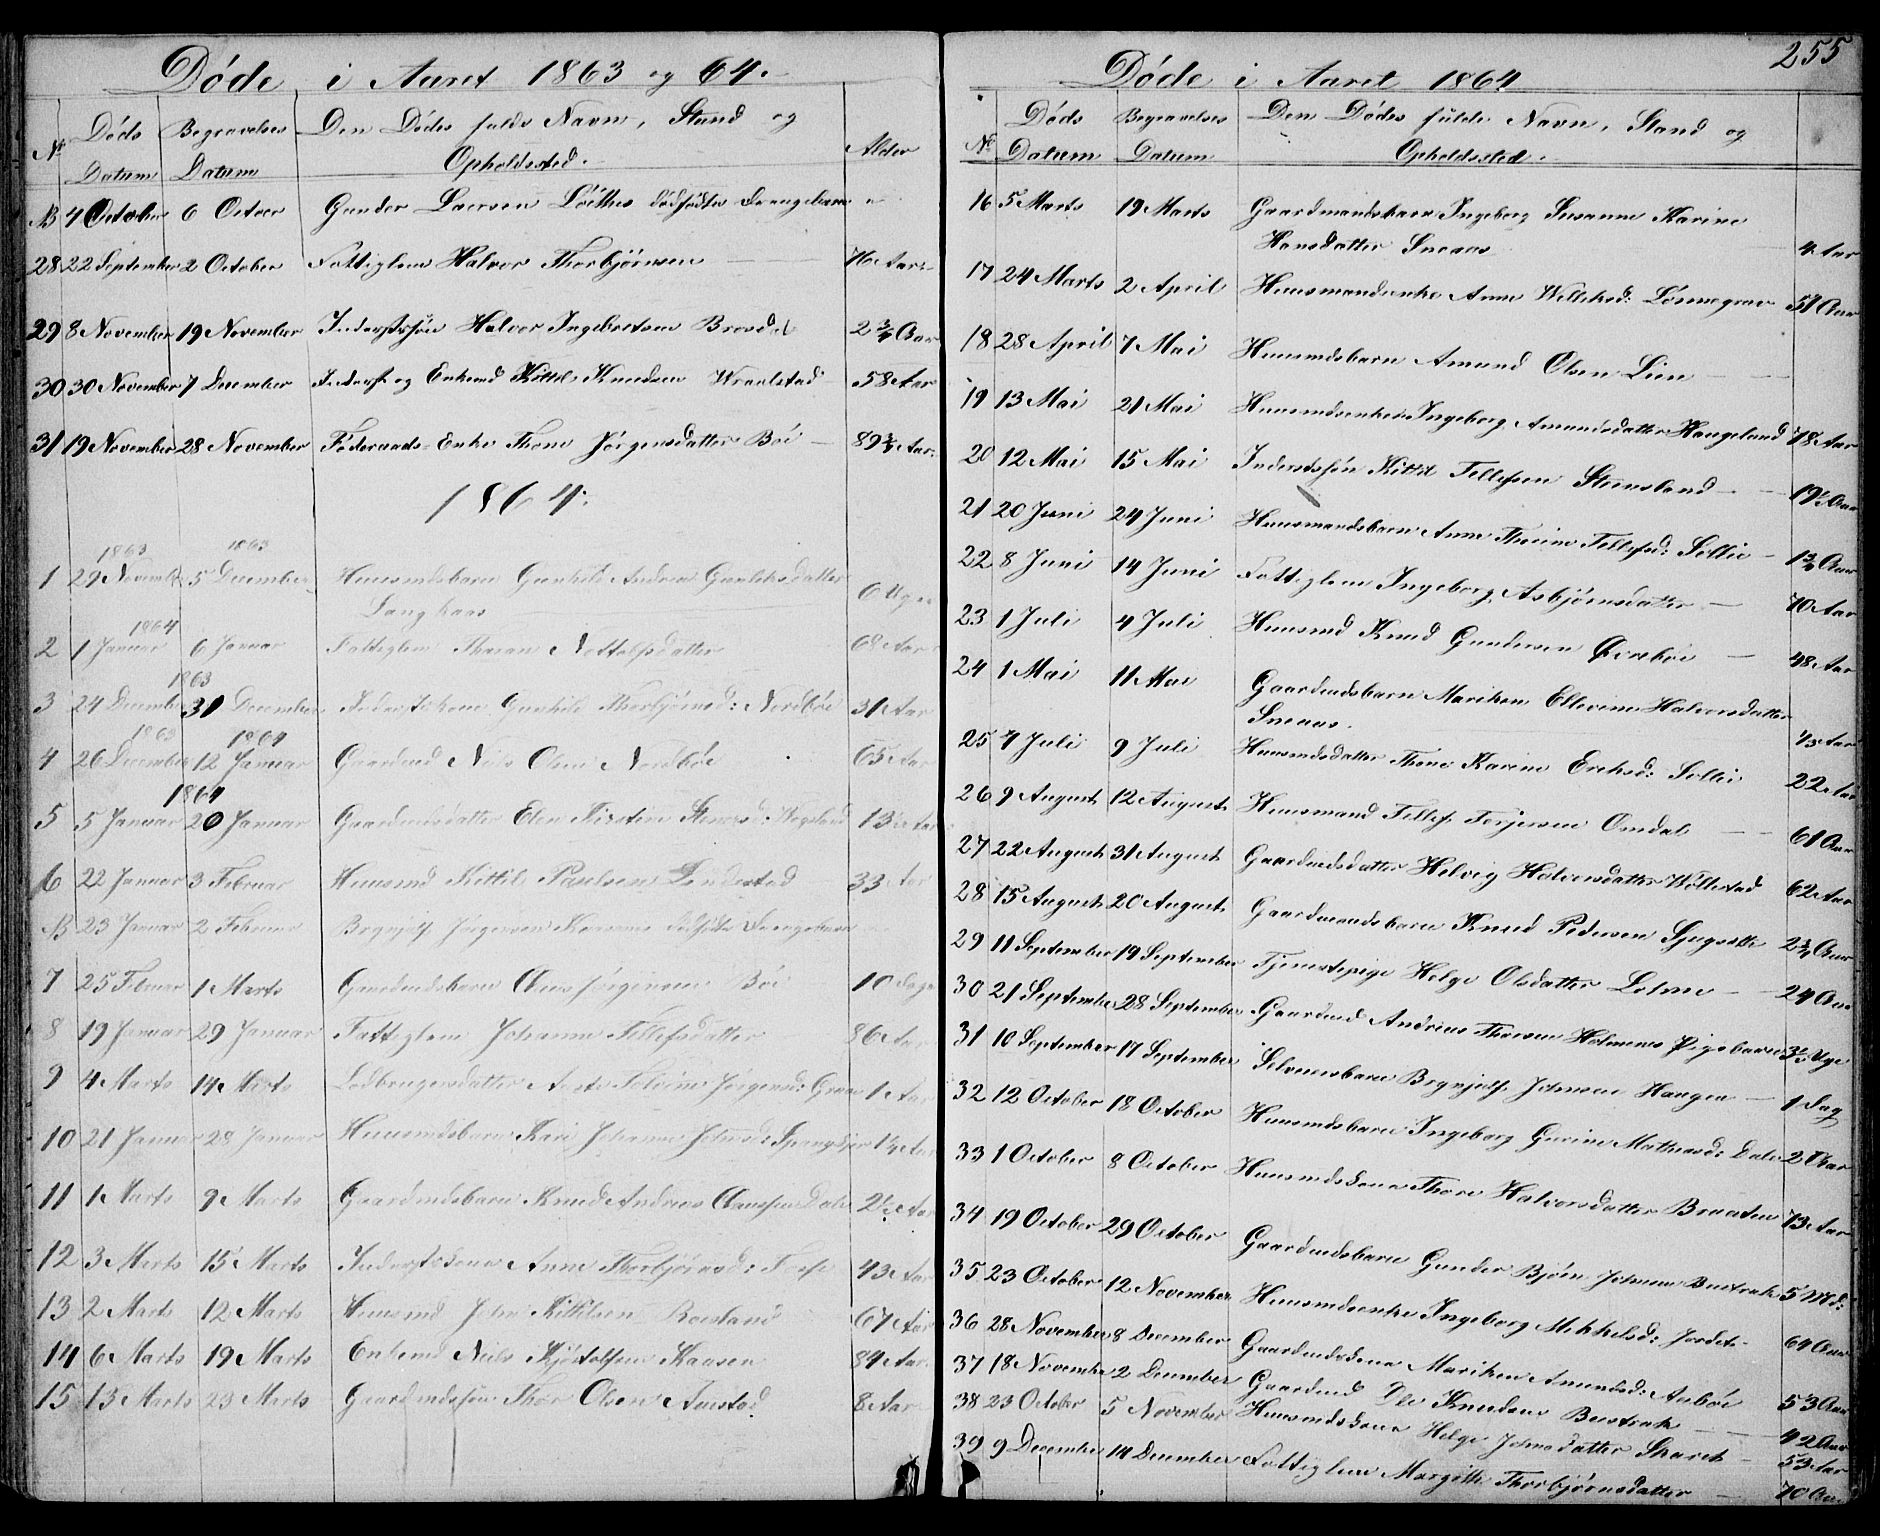 Døde i Aaret 1863 og 64.
Nr Døds Datum Begravelses Datum Den Dødes fulde Navn, Stand og Opholdssted. Alder
NB 4 October 6 October Gunder Larsen dødfødte Drengebarn "
28 22 September 2 October Fattiglem Halvor Thorbjørnsen 76 Aar
29 8 November 19 November Inderstsøn Halvor Ingebretsen 2 3/4 Aar
30 30 November 7 December Inderst og Enkemd Kittil Knudsen 58 Aar
31 19 November 28 November Føderaads-Enke Thone Jørgensdatter Bøe 89 3/4 Aar.
1864.
1863 1863
1 29 November 5 December Huusmdsbarn Gunhild Andrea Gunleksdatter
Langkaas 6 Uger
1864
2 1 Januar 6 Januar Fattiglem Tharan Nottolfsdatter 68 Aar
1863
3 24 December 31 December Inderstkone Gunhild Thorbjørnsd: Nordbøe 31 Aar
1863 1864
4 26 December 12 Januar Gaardmd Niels Olsen Nordbøe 65 Aar
1864
5 5 Januar 20 Januar Gaardmdsdatter Elen Kirstine 13 Aar
6 22 Januar 3 Februar Huusmd Kittil Paulsen 33 Aar
NB 23 Januar 2 Februar Brynjulf Jørgensen dødfødte Drengebarn
7 25 Februar 1 Marts Gaardmdsbarn Jørgensen Bøe 10 Dage
8 19 Januar 29 Januar Fattiglem Johanne Tellefsdatter 86 Aar
9 4 Marts 14 Marts Lodbrugersdatter Jørgensd: 1 Aar
10 21 Januar 28 Januar Huusmdsbarn Kari Johanne Johnsd:
11 1 Marts 9 Marts Gaardmdsbarn Knud Andreas 2 1/2 Aar
12 3 Marts 15 Marts Inderstkone Anne Thorbjørnsd: 43 Aar
13 2 Marts 12 Marts Huusmd John Kittilsen 67 Aar
14 6 Marts 19 Marts Enkemd Niels Kaasen 84 Aar
15 13 Marts 23 Marts Gaardmdssøn Thor Olsen 8 Aar
255
Døde i Aaret 1864
Nr Døds Datum Begravelses Datum Den Dødes fulde Navn, Stand og Opholdssted.
16 5 Marts 19 Marts Gaardmandsbarn Ingeborg Susanne Karine
Hansdatter Sneaas 4 Aar
17 24 Marts 2 April Huusmandsenke Anne Lønnegrav 51 Aar
18 28 April 7 Mai Huusmdsbarn Amund Olsen Lien
19 13 Mai 21 Mai Huusmdsenke Ingeborg Amundsdatter Haugeland 78 Aar
20 12 Mai 15 Mai Inderstsøn Kittil Tellefsen Steensland 19 1/2 Aar
21 20 Juni 24 Juni Huusmandsbarn Anne Thorine Tellefsd: Sollie 1 3/4 Aar
22 8 Juni 14 Juni Fattiglem Ingeborg Asbjørnsdatter 70 Aar
23 1 Juli 4 Juli Huusmd Knud Gundersen Øvrebøe 48 Aar
24 1 Mai 11 Mai Gaardmdsbarn Mariken Ellevine Halvorsdatter
Sneaas.
25 7 Juli 9 Juli Huusmdsdatter Thone Karine Erichsd: Sollie 22 Aar
26 9 August 12 August Huusmand Tellef Terjersen Omdal 61 Aar
27 22 August 31 August Gaardmdsdatter Helvig Halvorsdatter 62 Aar
28 15 August 20 August Gaardmandsbarn Knud Pedersen 2 3/4 Aar
29 11 September 19 September Tjenestepige Helge Olsdatter 24 Aar
30 21 September 28 September Gaardmd Andreas Thorsen Holmenes Pigebarn 3 1/2 Uge
31 10 September 17 September Selveiersbarn Brynjulf Johnsen Haugen 1 Dag
32 12 October 18 October Huusmdsbarn Ingeborg Gurine Mathiasd: Dale 2 Aar
33 1 October 8 October Huusmdskone Thore Halvorsdatter Braaten 73 Aar
34 19 October 29 October Gaardmdsbarn Gunder Bjørn Johnsen Bustrak 5 Md:
35 23 October 12 November Huusmdsenke Ingeborg Mikkelsd: Jordet 64 Aar
36 28 November 8 December Gaardmdskone Mariken Amundsd: Aabøe 53 Aar
37 18 November 2 December Gaardmd Ole Knudsen Bustrak 42 Aar
38 23 October 5 November Huusmdskone Helge Johnsdatter 53 Aar
39 9 December 14 December Fattiglem Margitte Thorbjørnsdatter 70 Aar